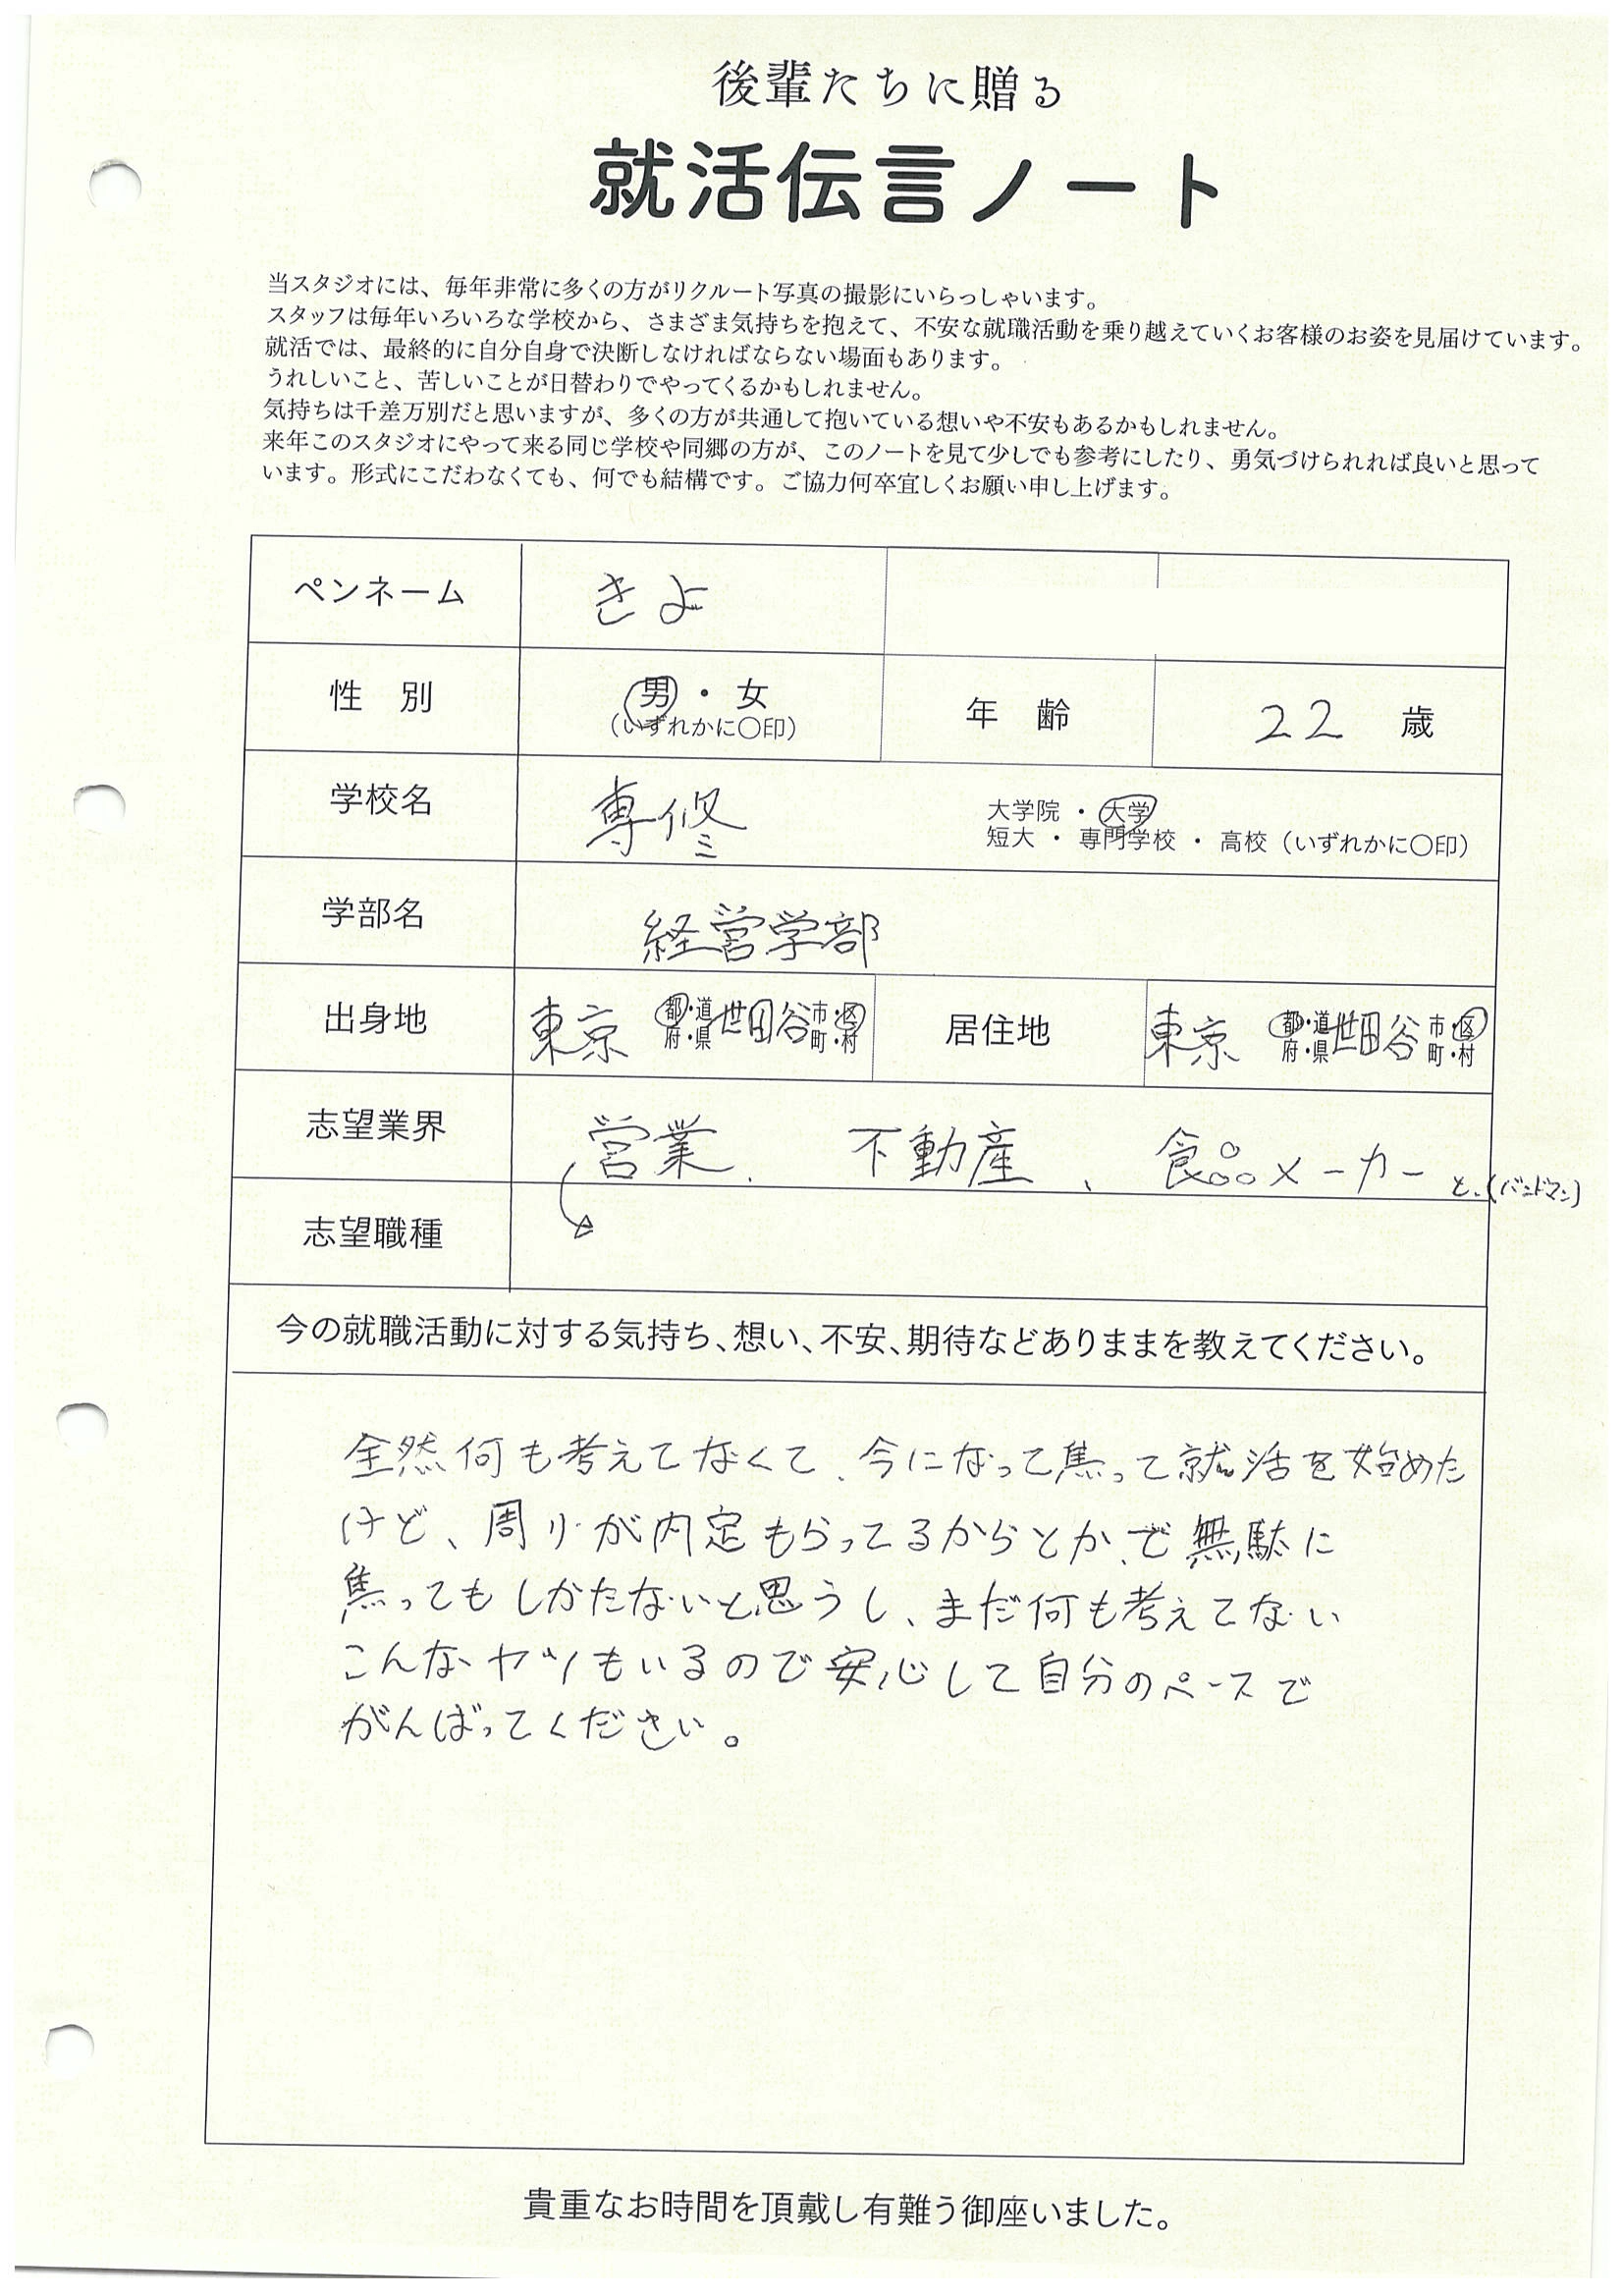 後輩たちに贈る
就活伝言ノート
当スタジオには、毎年非常に多くの方がリクルート写真の撮影にいらっしゃいます。
スタッフは毎年いろいろな学校から、さまざま気持ちを抱えて、不安な就職活動を乗り越えていくお客様のお姿を見届けています。
就活では、最終的に自分自身で決断しなければならない場面もあります。
うれしいこと、苦しいことが日替わりでやってくるかもしれません。
気持ちは千差万別だと思いますが、多くの方が共通して抱いている想いや不安もあるかもしれません。
来年このスタジオにやって来る同じ学校や同郷の方が、このノートを見て少しでも参考にしたり、勇気づけられれば良いと思って
います。形式にこだわなくても、何でも結構です。ご協力何卒宜しくお願い申し上げます。
ペンネーム きよ
性 別 男・女 (いずれかに〇印) 年 齢 22 歳
学校名 専修 大学院 ・ 大学
短大 ・ 専門学校 ・ 高校 (いずれかに〇印)
学部名 経営学部
出身地 東京 都・道府・県 世田谷 市・区町・村 居住地 東京 都・道府・県 世田谷 市・区町・村
志望業界 営業、 不動産、 食品メーカー と、(バンドマン)
志望職種
今の就職活動に対する気持ち、想い、不安、期待などありままを教えてください。
全然何も考えてなくて、今になって焦って就活を始めた
けど、周りが内定もらってるからとか、で無駄に
焦ってもしかたないと思うし、まだ何も考えてない
こんなヤツもいるので安心して自分のペースで
がんばってください。
貴重なお時間を頂戴し有難う御座いました。